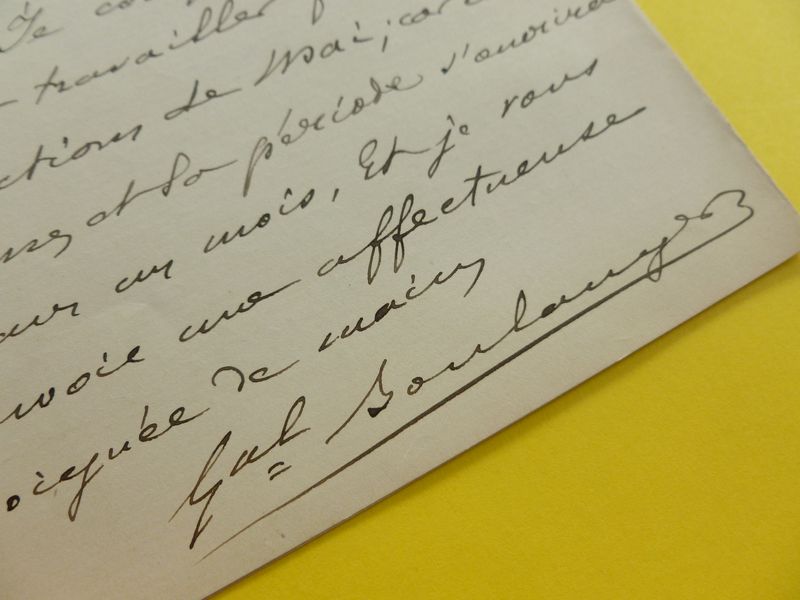 Je
travailler
ctions de Mai; car
et la période s'ouvrira
un mois, Et je vous
nvoie une affectueuse
oignée de mains
Gal Boulanger